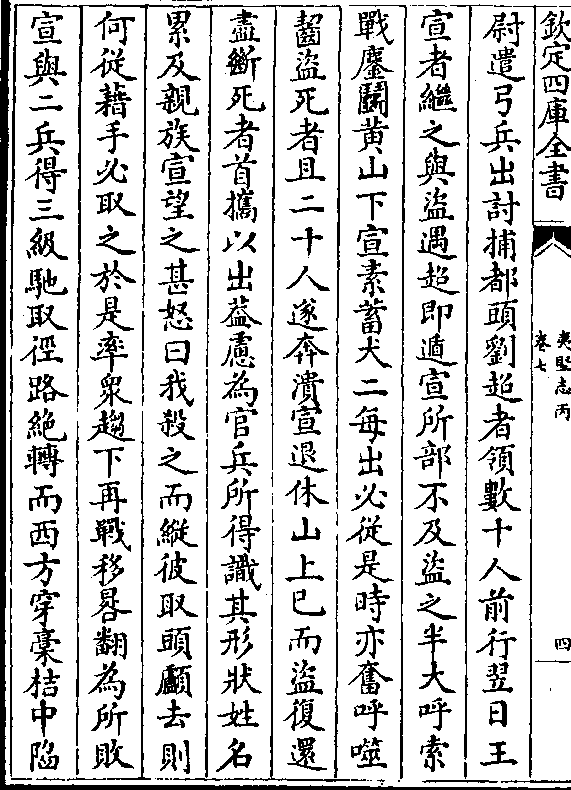 欽定四庫全書
夷堅志丙
卷七
四
尉遣弓兵出討捕都頭劉超者領數十人前行翌日王
宣者繼之與盜遇超即遁宣所部不及盜之半大呼索
戰鏖鬭黄山下宣素蓄犬二每出必從是時亦奮呼噬
齧盜死者且二十人遂奔潰宣退休山上已而盜復還
盡斷死者首攜以出葢慮為官兵所得識其形狀姓名
累及親族宣望之甚怒曰我殺之而縱彼取頭顱去則
何從藉手必取之於是率衆趨下再戰移晷翻為所敗
宣與二兵得三級馳取徑路絶轉而西方穿稾桔中陷